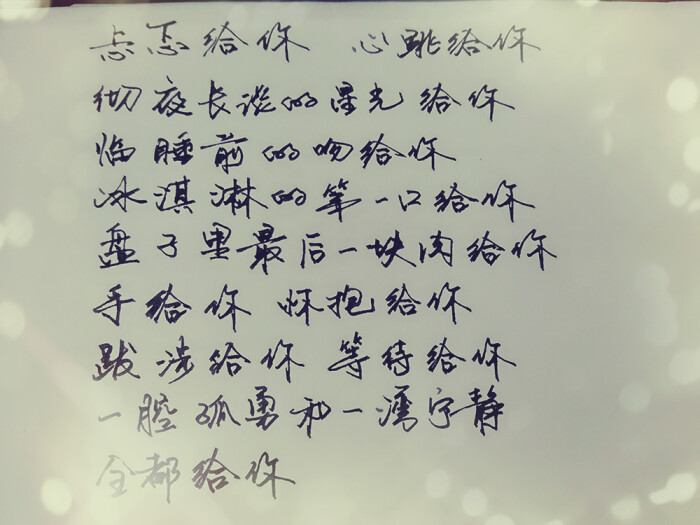 忐忑给你 心跳给你
彻夜长谈的星光给你
临睡前的吻给你
冰淇淋的第一口给你
盘子里最后一块肉给你
手给你 怀抱给你
跋涉给你 等待给你
一腔孤勇和一澫宁静
全都给你